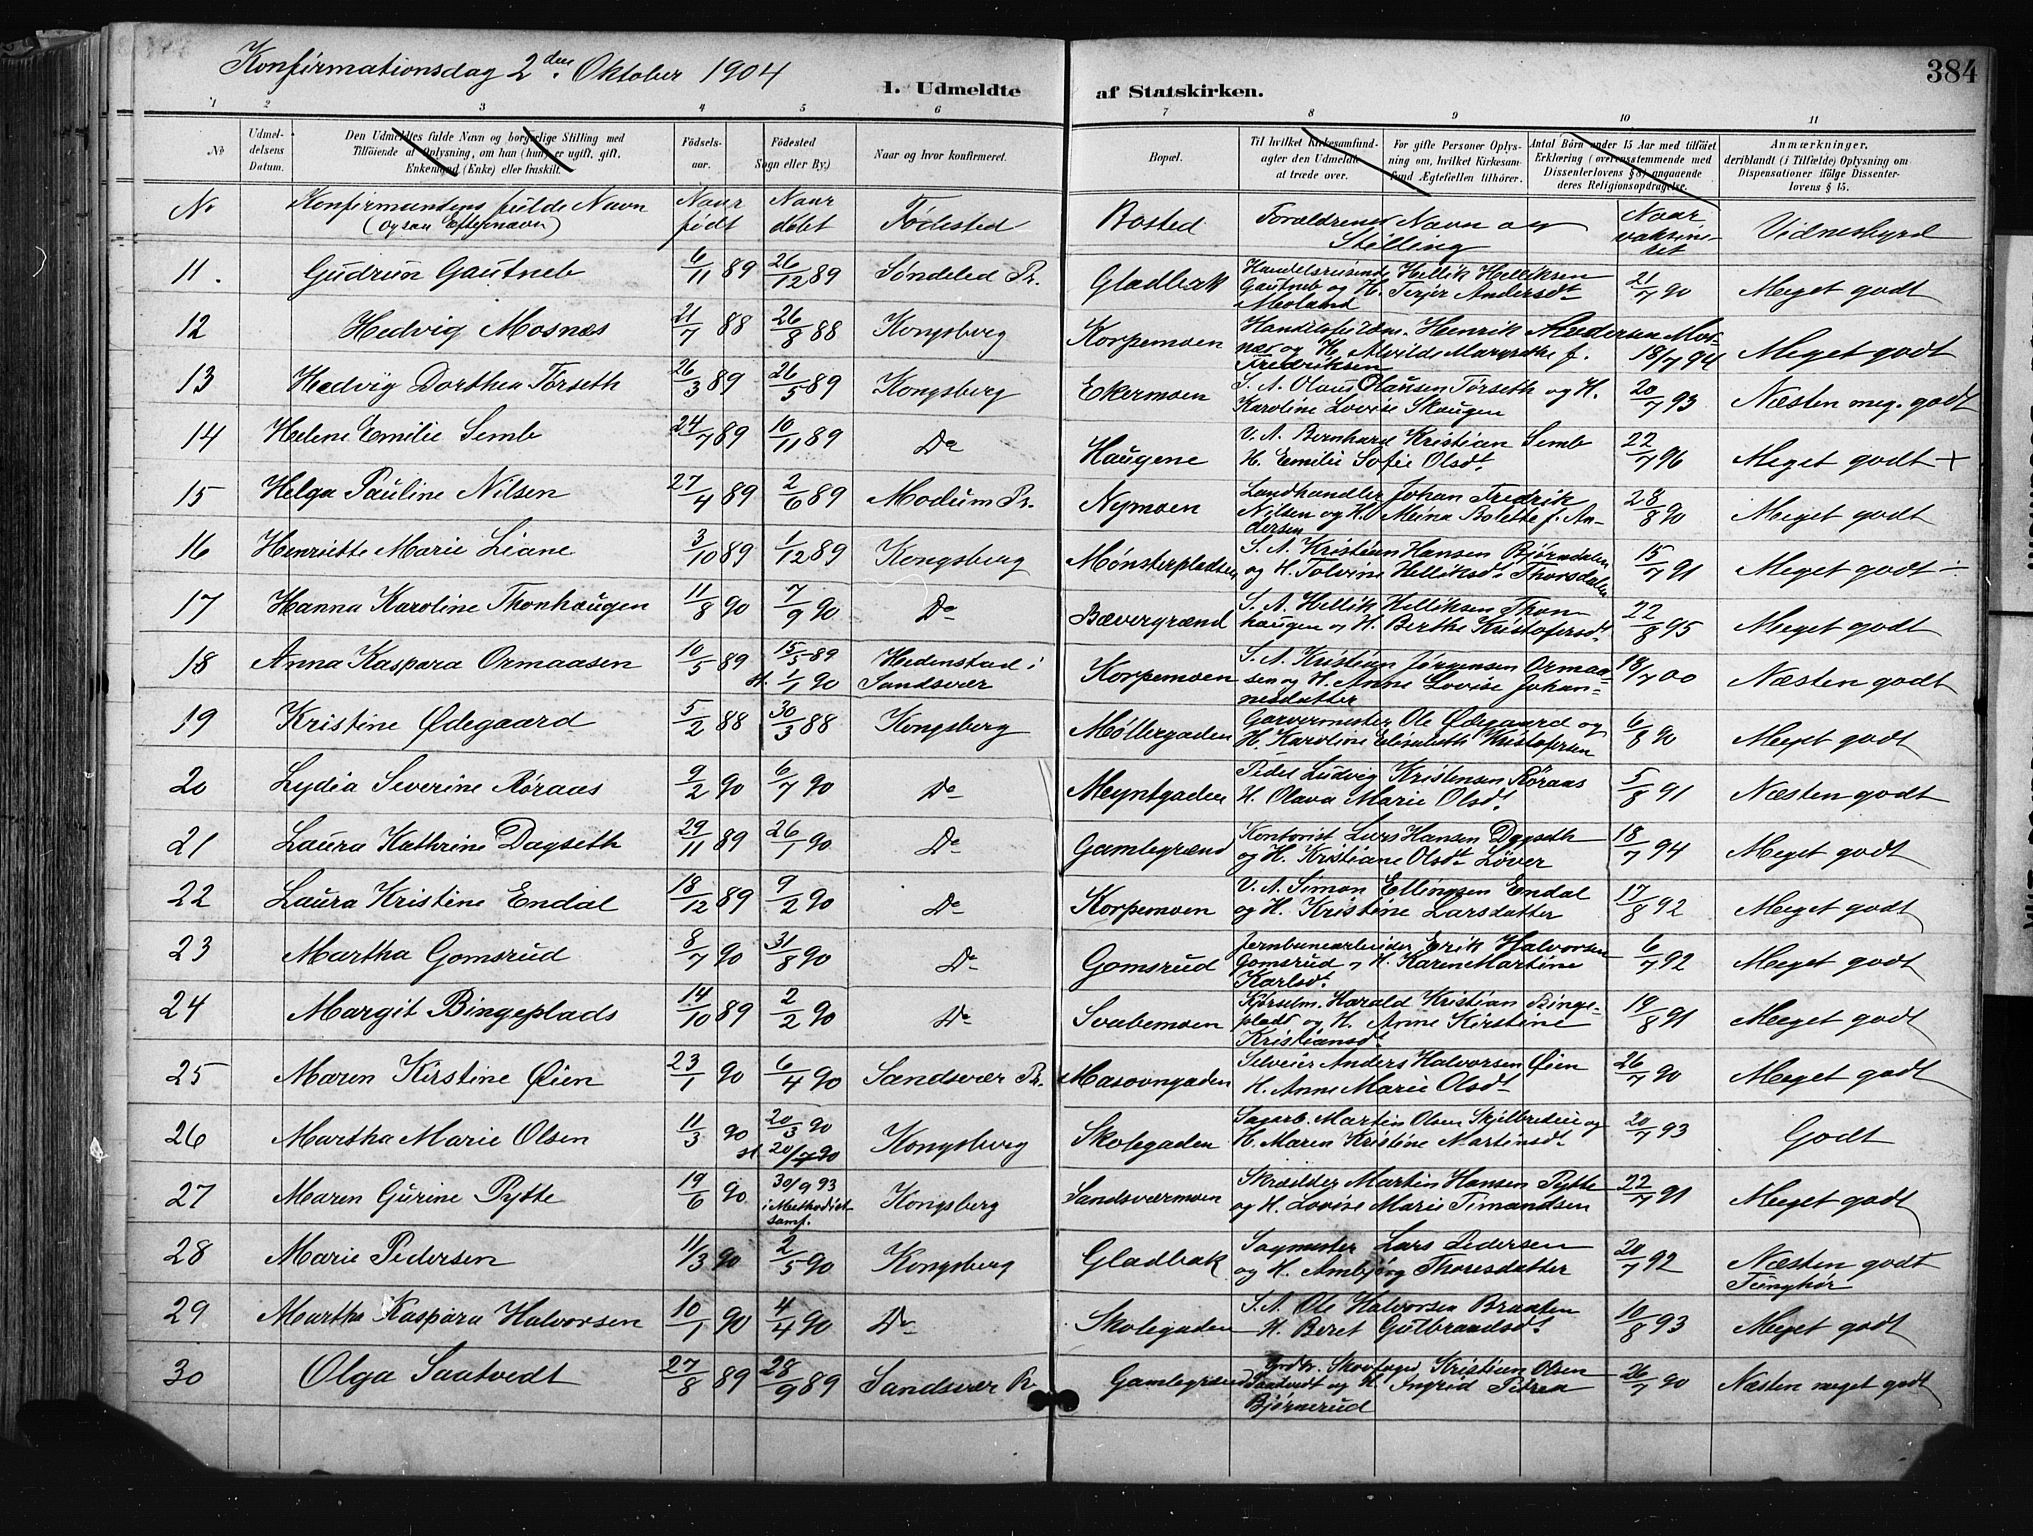 Konfirmationsdag 2den Oktober 1904
384
I. Udmeldte af Statskirken.
1 2 3 4 5 6 7 8 9 10 11
No
Udmel-
delsens
Datum.
Den Udmeldtes fulde Navn og borgerlige Stilling med
Tilføiende af Oplysning, om han (hun) er ugift, gift,
Enkemand (Enke) eller fraskilt.
Fødsels-
aar.
Fødested
Sogn eller By.)
Naar og hvor konfirmeret.
Bopæl.
Til hvilket Kirkesamfund
agter den Udmeldte
at træde over.
For gifte Personer Oplys-
ning om, hvilket Kirkesam-
fund Ægtefællen tilhører.
Antal Børn under 15 Aar med tilføiet
Erklæring (overensstemmende med
Dissenterlovens § 8) angaaende
deres Religionsopdragelse.
Anmærkninger,
deriblandt (i Tilfælde) Oplysning om
Dispensationer ifølge Dissenter-
lovens § 15.
No Konfirmandens fulde Navn Naar Naar Fødested Bosted Forældrenes Navn og Naar Vidnesbyrd
(ogsaa Efternavn) født døbt Stilling vaksine-
ret
11. Gudrun Gautneb 6/11 89 26/12 89 Søndeled Pr. Gladbak Handelsreisende Hellik Helliksen 21/7 90 Meget godt
Gautneb og H. Terjer Andersdt
Moland
12 Hedvig Mosnæs 21/7 88 26/8 88 Kongsberg Korpemoen Henrik Pedersen Mos- 18/7 94 Meget godt
næs og H. Alvilde Margrethe f.
Fredriksen
13 Hedvig Dorthea Torseth 26/3 89 26/5 89 Kongsberg Ekermoen S. A. Olaus Olausen Torseth og H. 20/7 93 Næsten meg. godt
Karoline Lovise Skaugen
14 Helene Emilie Semb 24/7 89 10/11 89 Do Haugene V. A. Bernhard Kristian Semb 22/7 96 Meget godt +
H. Emilie Sofie Olsdt.
15 Helga Pauline Nilsen 27/4 89 2/6 89 Modum Pr. Nymoen Landhandler Johan Fredrik 28/8 90 Meget godt
Nilsen og H. Meina Bolette f. An-
dersen
16 Henriette Marie Liane 3/10 89 1/12 89 Kongsberg Mønsterpladsen S. A. Kristian Hansen Bjørndalen 15/7 91 Meget godt ÷
og H. Tolvine Helliksdt. Thorsdalen
17 Hanna Karoline Thonhaugen 11/8 90 7/9 90 Do Bævergrænd S. A. Hellik Helliksen Thon- 22/8 95 Meget godt
haugen og H. Berthe Kristofersdt.
18 Anna Kaspara Ormaasen 10/5 89 15/5 89 Hedenstad i Korpemoen S. A. Kristian Jørgensen Ormaa- 18/7 00 Næsten godt
st. 1/1 90 Sandsvær sen og H. Anne Lovise Johan-
nesdatter
19 Kristine Ødegaard 5/2 88 30/3 88 Kongsberg Møllergaden Garvermester Ole Ødegaard og 6/8 90 Meget godt
H. Karoline Elisabeth Kristofersen
20 Lydia Severine Røraas 9/2 90 6/7 90 Do Meyntgaden Pedel Ludvig Kristensen Røraas 5/8 91 Næsten godt
H. Olava Marie Olsdt.
21 Laura Kathrine Dagseth 29/11 89 26/1 90 Do Gamlegrænd Kontorist Lars Hansen Dagseth 18/7 94 Meget godt
og H. Kristiane Olsdt Løver
22 Laura Kristine Endal 18/12 89 9/2 90 Do Korpemoen V. A. Simon Ellingsen Endal 17/8 92 Meget godt
og H. Kristine Larsdatter
23 Martha Gomsrud 8/7 90 31/8 90 Do Gomsrud Jernbanearbeider Erik Halvorsen 6/7 92 Meget godt
Gomsrud og H. Karen Martine
Karlsdt.
24 Margit Bingeplads 14/10 89 2/2 90 Do Svabemoen Kjørselm. Harald Kristian Binge- 19/8 91 Meget godt
plads og H. Anne Kirstine
Kristiansdt
25 Maren Kirstine Øien 23/1 90 6/4 90 Sandsvær Pr. Masovngaden Anders Halvorsen Øien 26/7 90 Meget godt
H. Anne Marie Olsdt.
26 Martha Marie Olsen 11/3 90 20/3 90 Kongsberg Skolegaden Sagarb. Martin Olsen og 20/7 93 Godt
st. 20/7 90 H. Maren Kristine Martinsdt.
27 Maren Gurine Pytte 19/6 90 30/9 93 Kongsberg Sandsværmoen Skrædder Martin Hansen Pytte 22/7 91 Meget godt
i Methodist- og H. Lovise Marie Timandsen
samf.
28 Marie Pedersen 11/3 90 2/5 90 Kongsberg Gladbak Sagmester Lars Pedersen 20/7 92 Næsten godt
og H. Ambjørg Thoresdatter Tunghør
29 Martha Kaspara Halvorsen 10/1 90 4/4 90 Do Skolegaden S. A. Ole Halvorsen Braaten 10/8 93 Meget godt
H. Beret Gulbrandsdt.
30 Olga Saatvedt 27/8 89 28/9 89 Sandsvær Pr Gamlegrænd Grdbr. Skovfoged Kristian Olsen 26/7 90 Næsten meget godt
Saatvedt og H. Ingrid Petrea
Bjørnerud